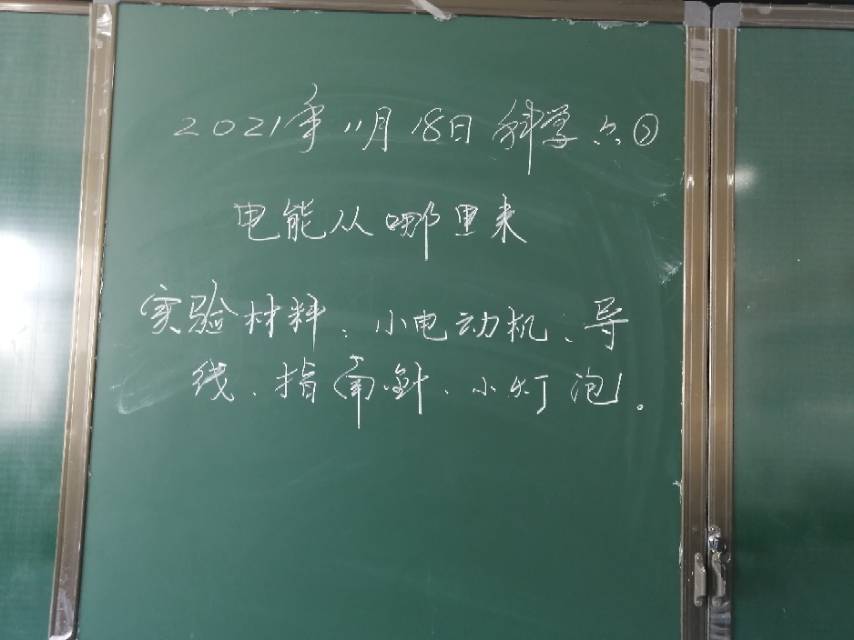 2021年11月18日 科学 六⑤
电能从哪里来
实验材料：小电动机、导
线、指南针、小灯泡。